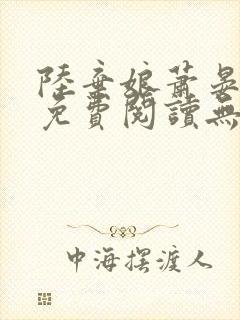 陸棄娘蕭晏
免費閱讀無
中海摆渡人